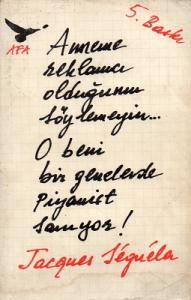 5. Baskı
AFA
Anneme
reklamcı
olduğumu
söylemeyin...
O beni
bir genelevde
Piyanist
sanıyor!
Jacques Séguéla